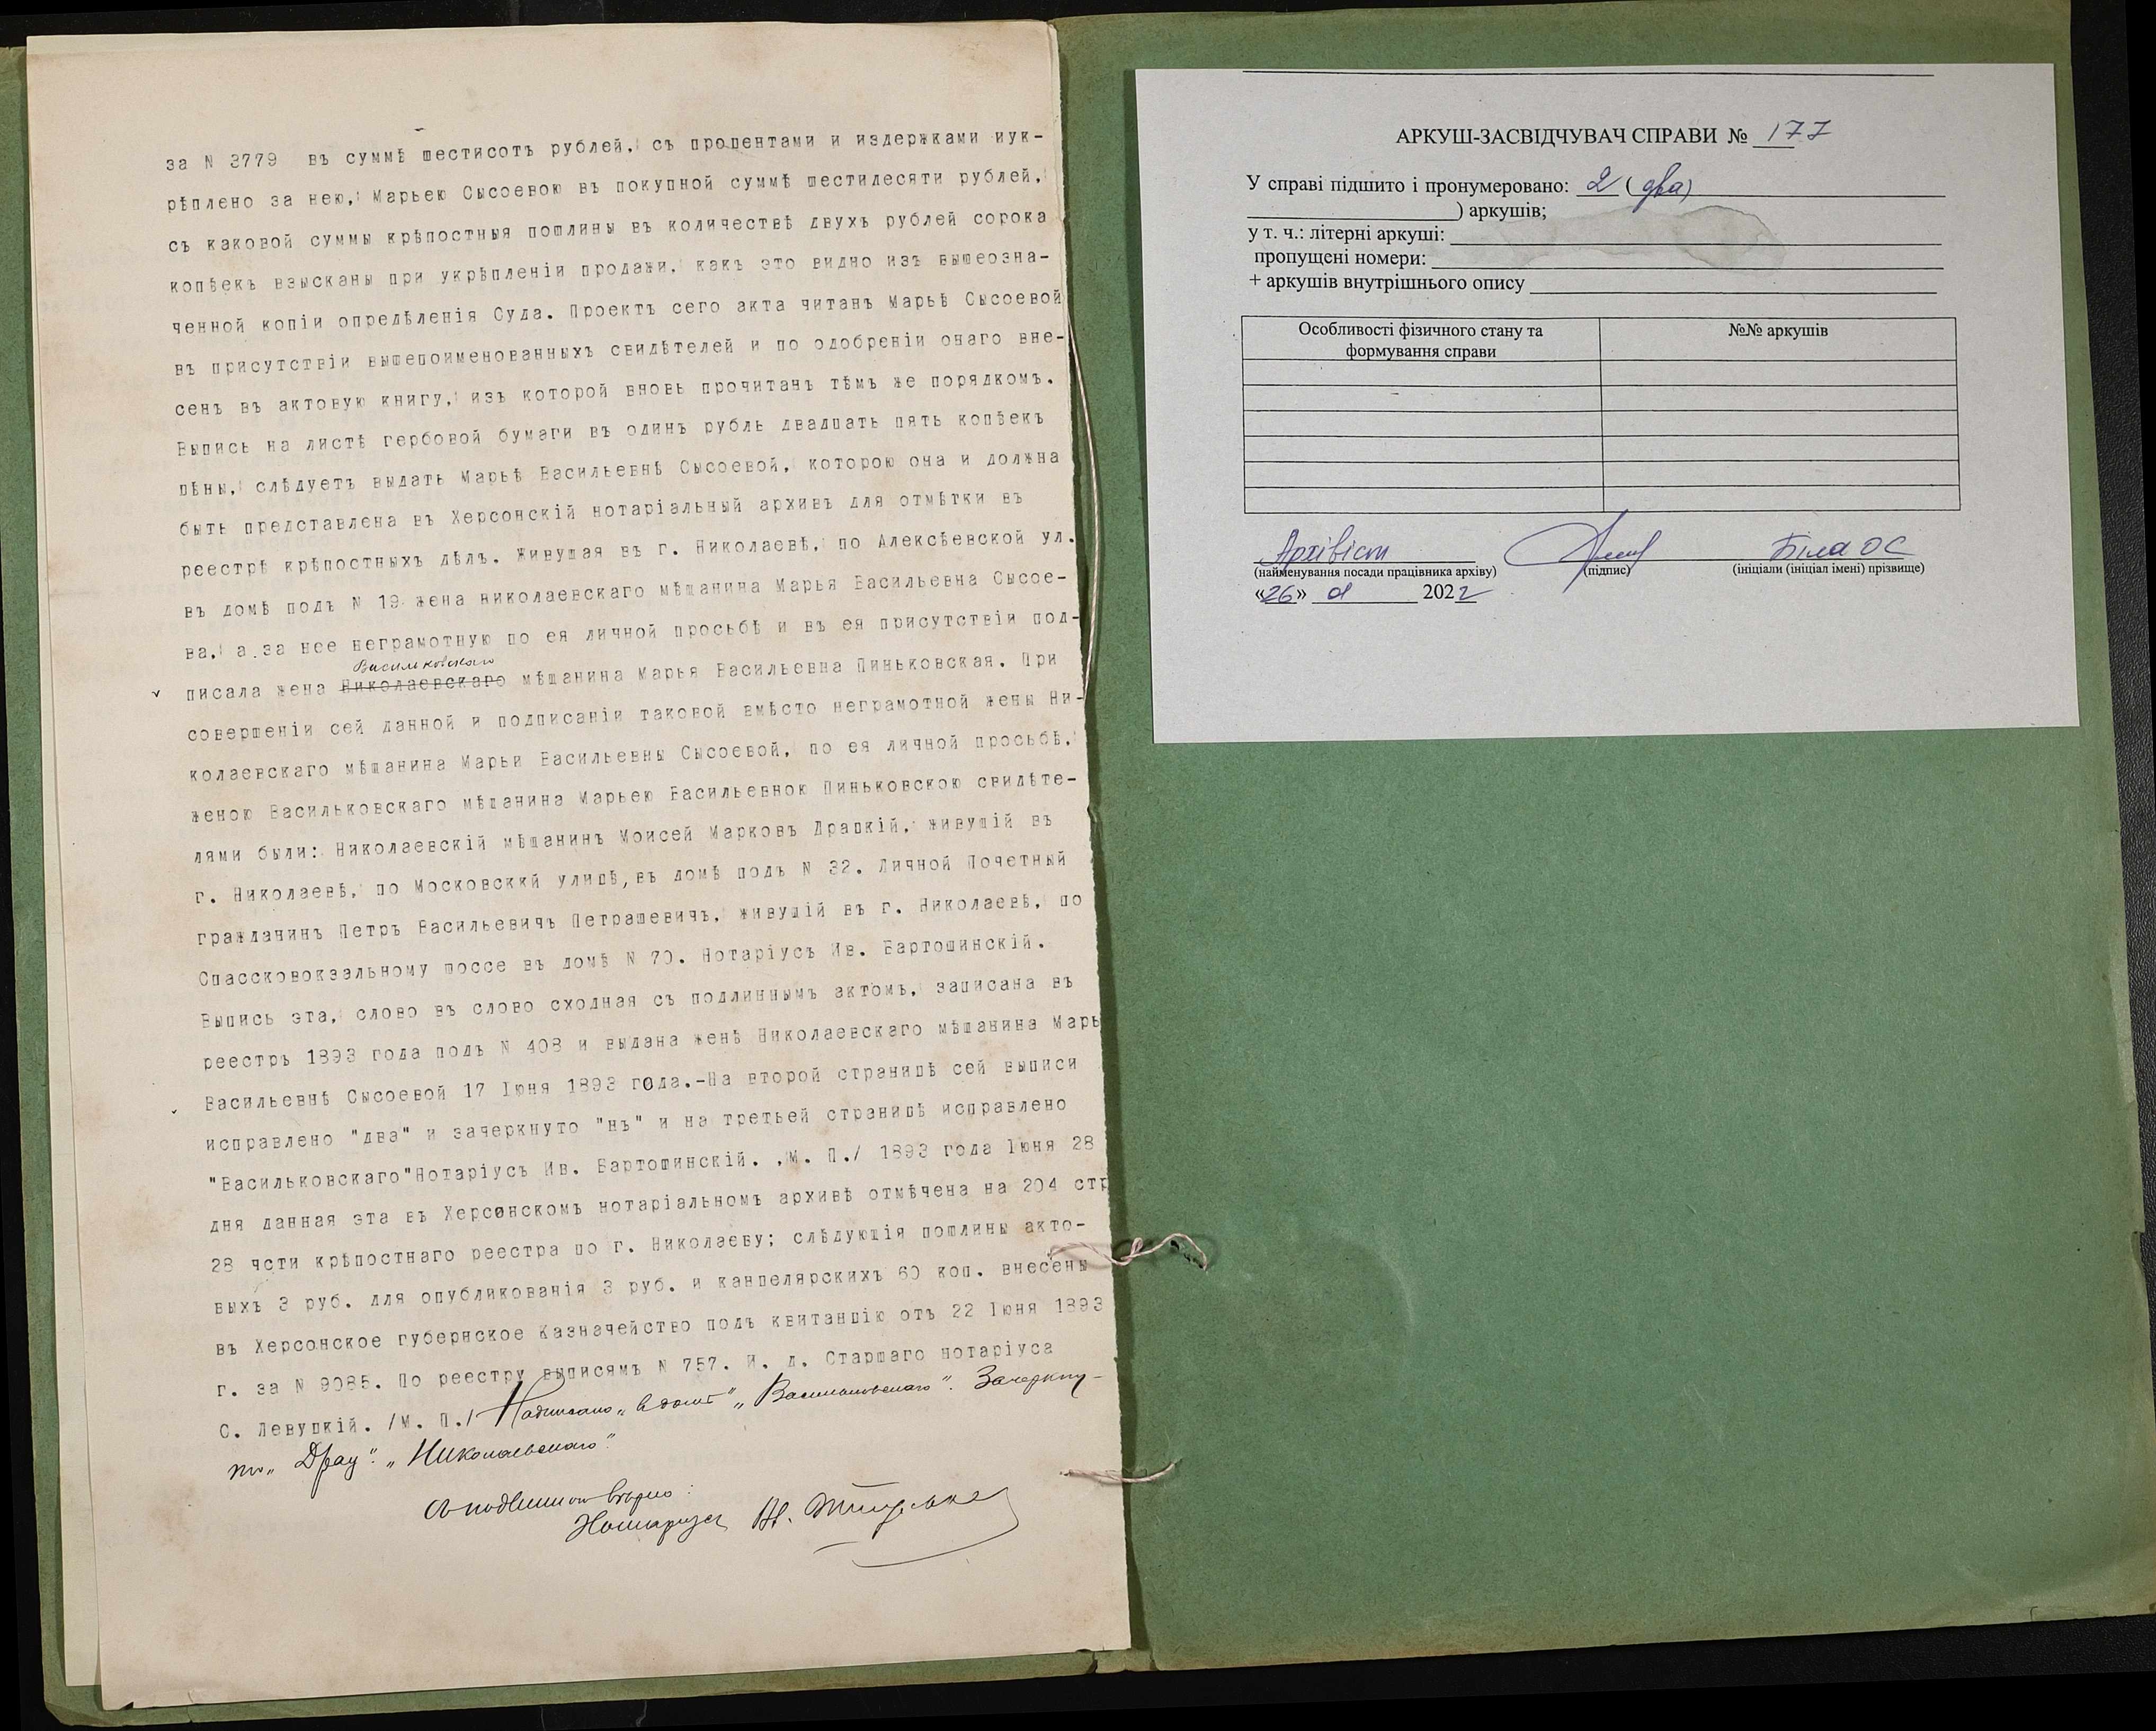 за N 3779 въ суммѣ шестисотъ рублей, съ процентами и издержками иук-
рѣплено за нею, Марьею Сысоевою въ покупной суммѣ шестидесяти рублей,
съ каковой суммы крѣпостныя пошлины въ количествѣ двухъ рублей сорока
копѣекъ взысканы при укрѣпленіи продажи, какъ это видно изъ вышеозна-
ченной копіи опредѣленія Суда. Проектъ сего акта читанъ Марьѣ Сысоевой
въ присутствіи вышепоименованныхъ свидѣтелей и по одобреніи онаго вне-
сенъ въ актовую книгу, изъ которой вновь прочитанъ тѣмъ же порядкомъ.
Выпись на листѣ гербовой бумаги въ одинъ рубль двадцать пять копѣекъ
цѣны, слѣдуетъ выдать Марьѣ Васильевнѣ Сысоевой, которою она и должна
быть представлена въ Херсонскій нотаріальный архивъ для отмѣтки въ
реестрѣ крѣпостныхъ дѣлъ. Живущая въ г. Николаевѣ, по Алексѣевской ул.
въ домѣ подъ N 19 жена николаевскаго мѣщанина Марья Васильевна Сысое-
ва, а за нее неграмотную по ея личной просьбѣ и въ ея присутствіи под-
Васильковскаго
писала жена Николаевскаго мѣщанина Марья Васильевна Пиньковская. При
совершеніи сей данной и подписаніи таковой вмѣсто неграмотной жены Ни-
колаевскаго мѣщанина Марьи Васильевны Сысоевой, по ея личной просьбѣ,
женою Васильковскаго мѣщанина Марьею Васильевною Пиньковскою свидѣте-
лями были: Николаевскій мѣщанинъ Моисей Марковъ Драцкій, живущій въ
г. Николаевѣ, по Московсккй улицѣ, въ домѣ подъ N 32. Личной Почетный
гражданинъ Петръ Васильевичъ Петрашевичъ, живущій въ г. Николаевѣ, по
Спассковокзальному шоссе въ домѣ N 70. Нотаріусъ Ив. Бартошинскій.
Выпись эта, слово въ слово сходная съ подлиннымъ актомъ, записана въ
реестръ 1893 года подъ N 408 и выдана женѣ Николаевскаго мѣщанина Марь
Васильевнѣ Сысоевой 17 Іюня 1893 года.-На второй страницѣ сей выписи
исправлено "два" и зачеркнуто "нъ" и на третьей страницѣ исправлено
"Васильковскаго"Нотаріусъ Ив. Бартошинскій. ,М. П./ 1893 года Іюня 28
дня данная эта въ Херсонскомъ нотаріальномъ архивѣ отмѣчена на 204 стр
28 чсти крѣпостнаго реестра по г. Николаеву; слѣдующія пошлины акто-
выхъ 3 руб. для опубликованія 3 руб. и канцелярскихъ 60 коп. внесены
въ Херсонское губернское Казначейство подъ квитанцію отъ 22 Іюня 1893
г. за N 9085. По реестру выписямъ N 757. И. д. Старшаго нотаріуса
С. Левуцкій. /М. П./ Надписано „ "„ Васильковскаго". Зачеркну-
то „ Драц". „ Николаевскаго".
Съ подлиннымъ вѣрно:
Нотаріусъ
АРКУШ-ЗАСВІДЧУВАЧ СПРАВИ № 177
У справі підшито і пронумеровано: 2 (два)
) аркушів;
у т. ч.: літерні аркуші:
пропущені номери:
+ аркушів внутрішнього опису
Особливості фізичного стану та формування справи
№№ аркушів
Архівіст Біла ОС
(найменування посади працівника архіву) (підпис) (ініціали (ініціал імені) прізвище)
«26» 01 2022